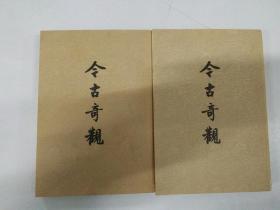 今古奇觀
今古奇觀